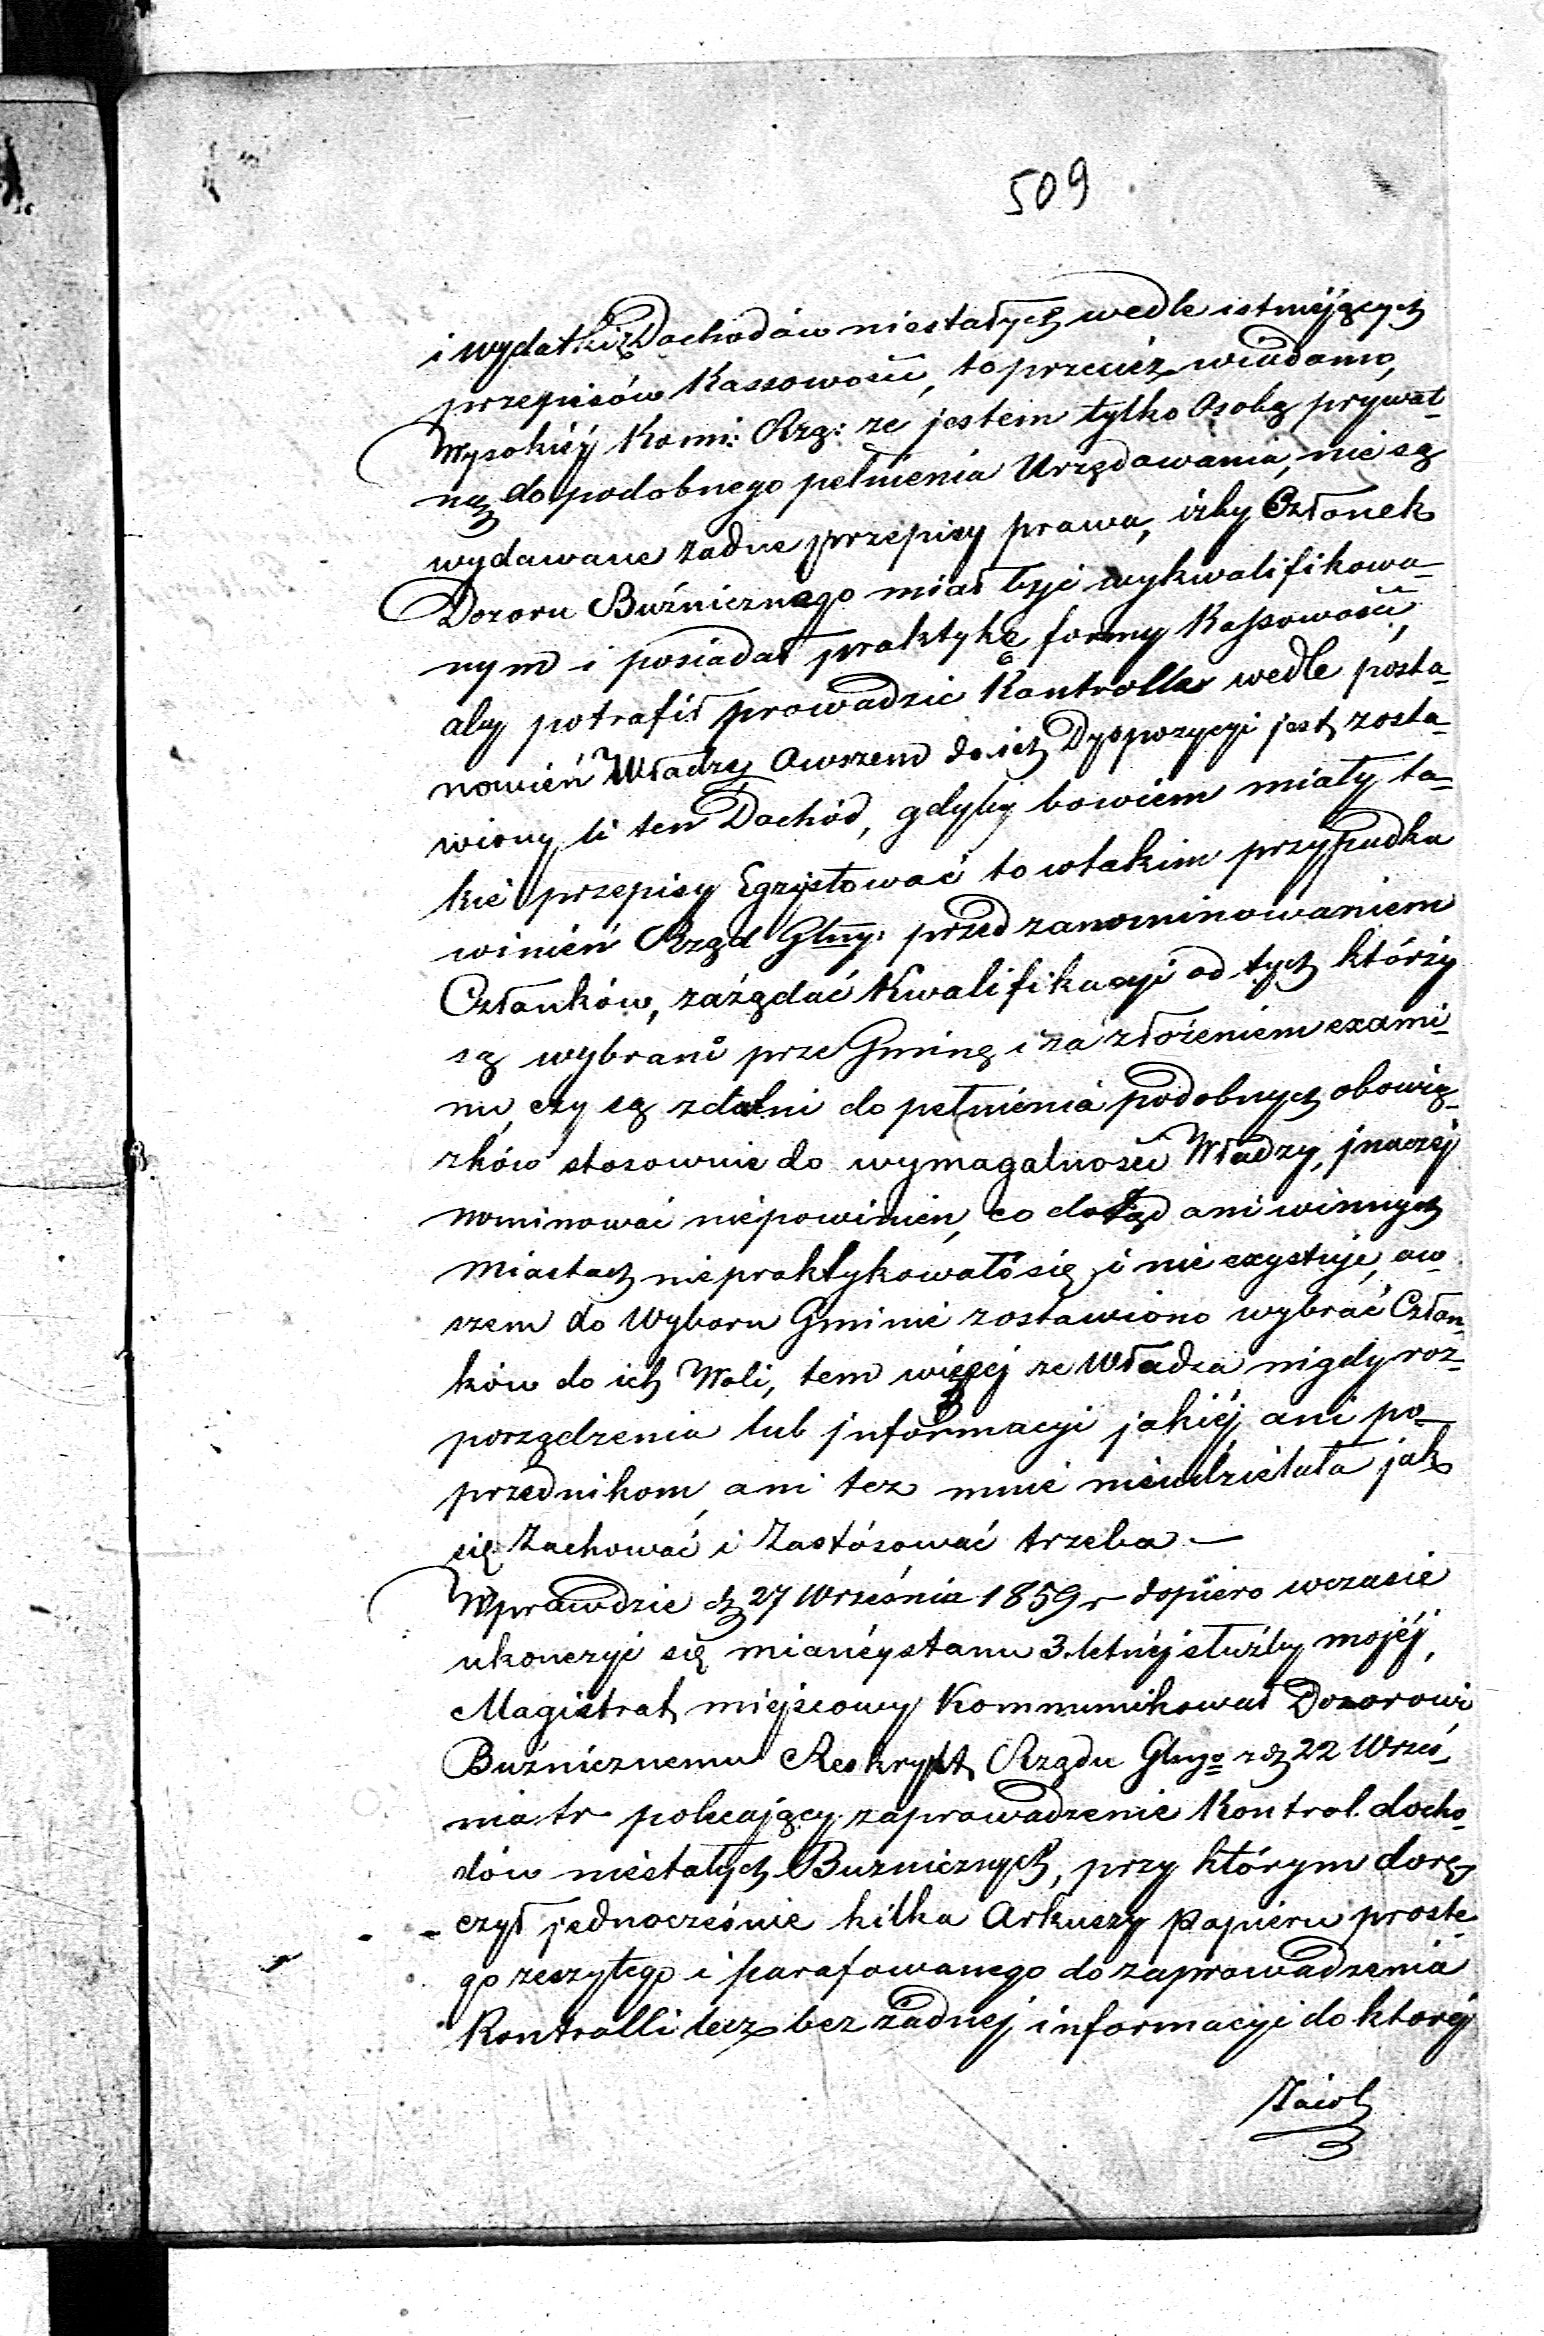 509
i wydatki z Dochodów niestałych wedle istniejących
przepisów Kassowości, to przecież wiadomo,
Wysokiéj Komi: Rzą: ze jestem tylko Osobą prywat-
ną do podobnego pełnienia Urzędowania, nie są
wydawane zadne przepisy prawa, izby Członek
Dozoru Buźnicznego miał być wykwalifikowa-
nym i posiadał praktykę formy Kassowości,
aby potrafił prowadzić Kontrolle wedle posta-
nowień Władzy Owszem do ich Dyspozycyi jest zosta-
wiony li ten Dochód, gdyby bowiem miały ta-
kie przepisy Egzystować to wtakim przypadku
winien Rząd Głny: przed zanominowaniem
Członków, zażądać Kwalifikacyi od tych którzy
są wybrani prze Gminę i za złożeniem exami-
nu, czy są zdatni do pełnienia podobnych obowią-
zków stosownie do wymagalności Władzy, jnaczéj
nominować niepowinien, co dotąd ani winnych
Miastach niepraktykowało się, i nie exystuje, ow-
szem do Wyboru Gminie zostawiono wybrać Człon-
ków do ich Woli, tem więcéj ze Władza nigdy roz-
porządzenia lub jnformacyi jakiéj ani po-
przednikom, ani tez mnie nieudzielała jak
się Zachować i Zastósować trzeba —
Wprawdzie d. 27 Września 1859 r dopiéro wczasie
ukonczyć się mianéy stanu 3. letniéj służby mojéj,
Magistrat miéjscowy Kommunikował Dozorowi
Buźnicznemu Reskrypt Rządu Głngo z d. 22 Wrześ-
nia tr polecający zaprowadzenie Kontrol. docho-
dów niestałych Buznicznych, przy którym dorę-
czył jednocześnie kilka Arkuszy Papieru proste-
go zeszytego i parafowanego do zaprowadzenia
Kontrolli lecz bez żadnej informacyi do któréj